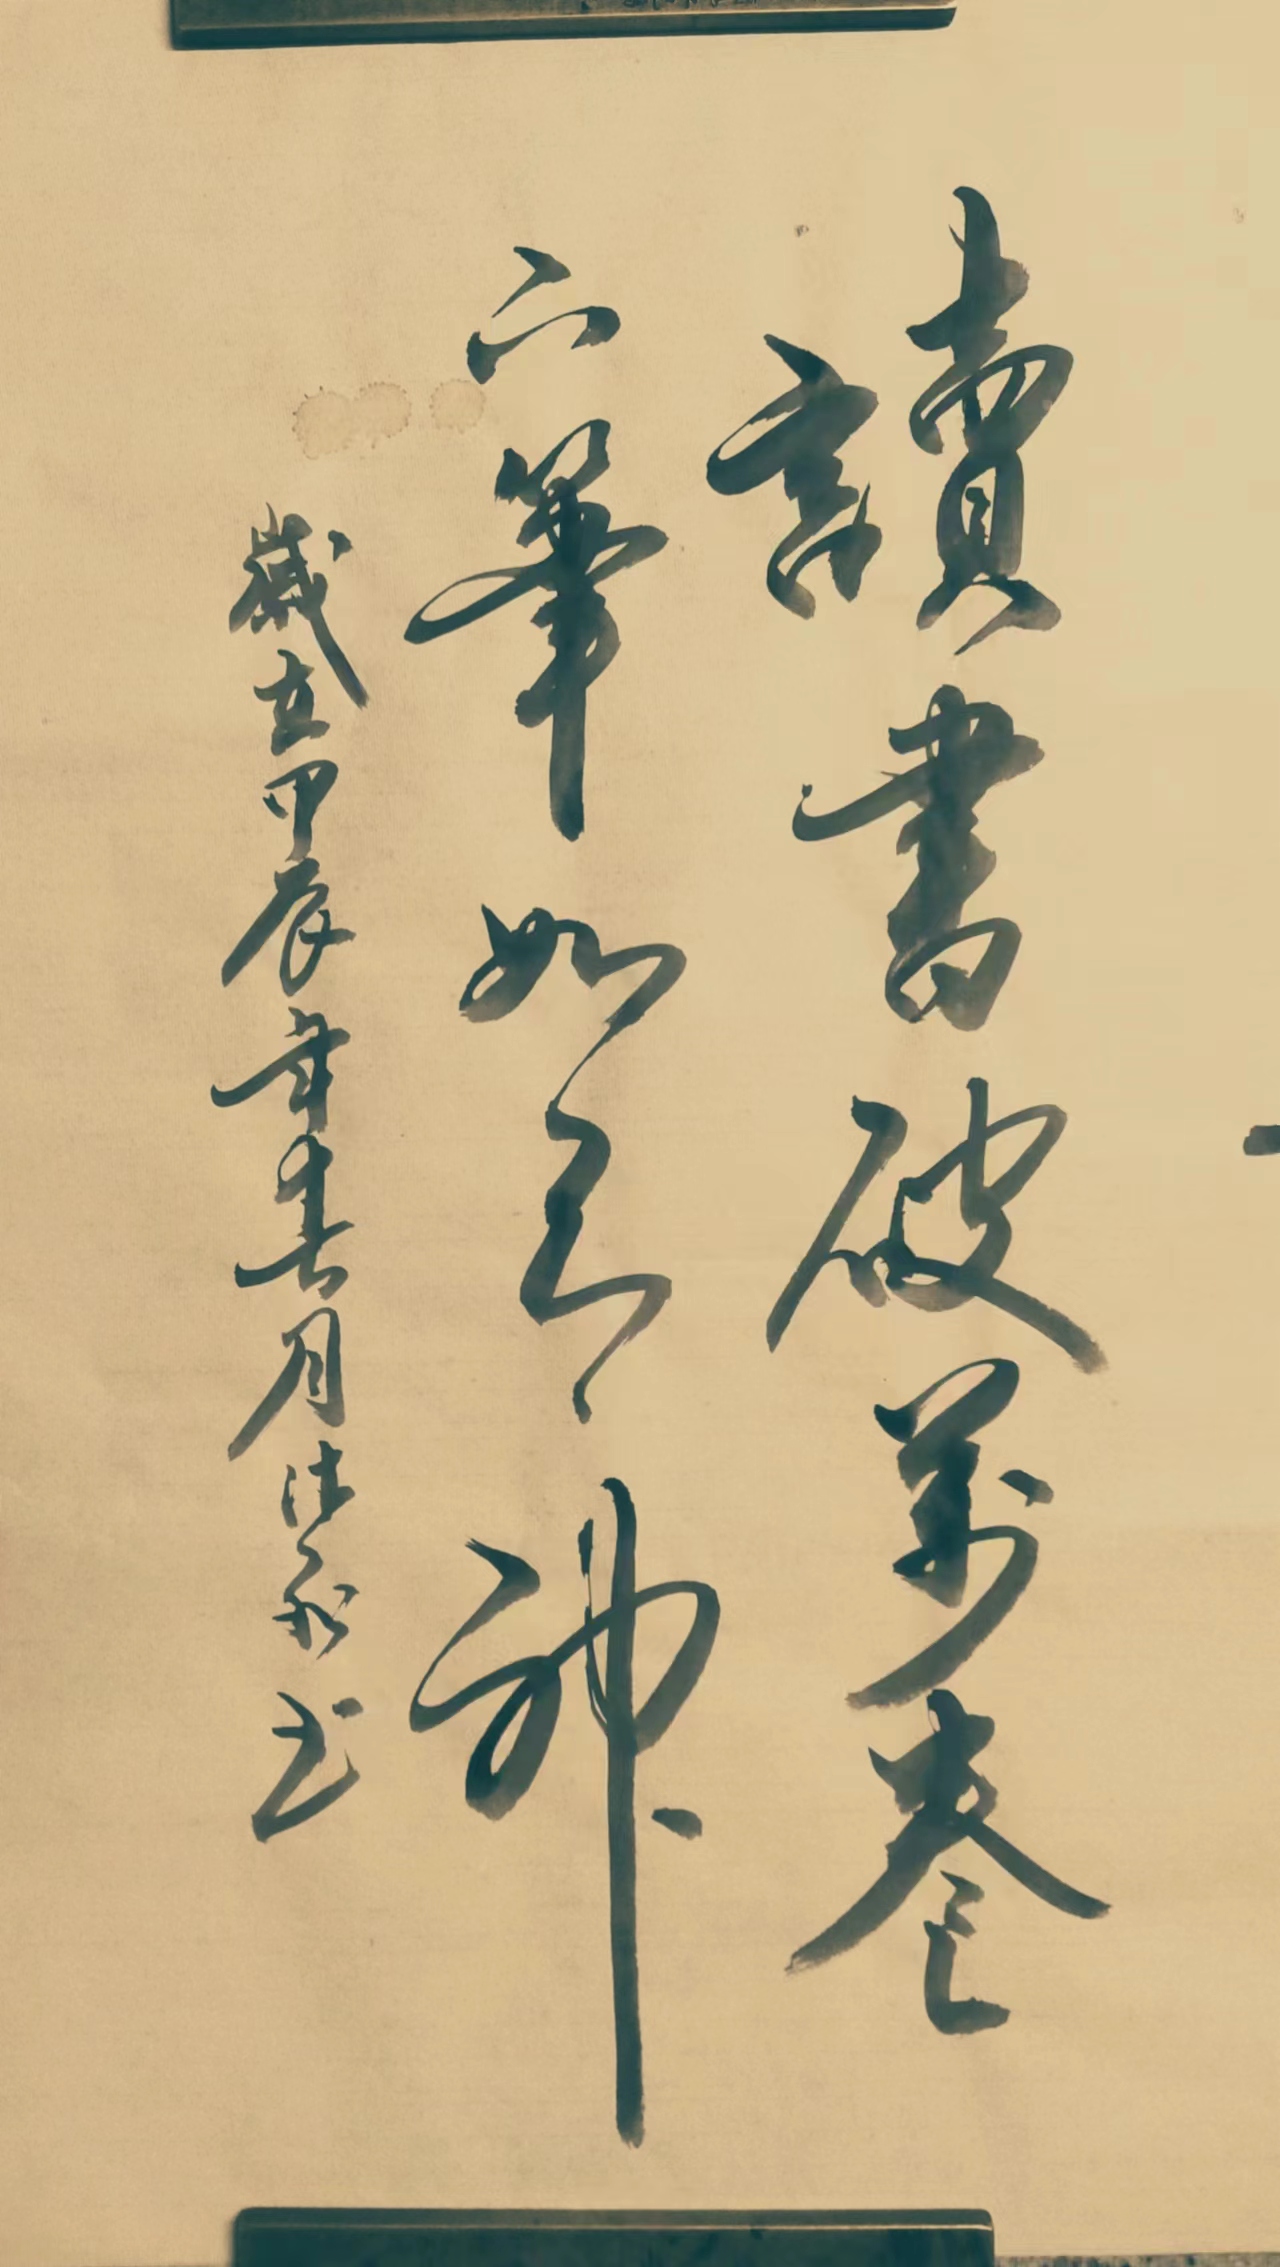 讀書破萬卷
下筆如有神
歲在甲辰年春月
书